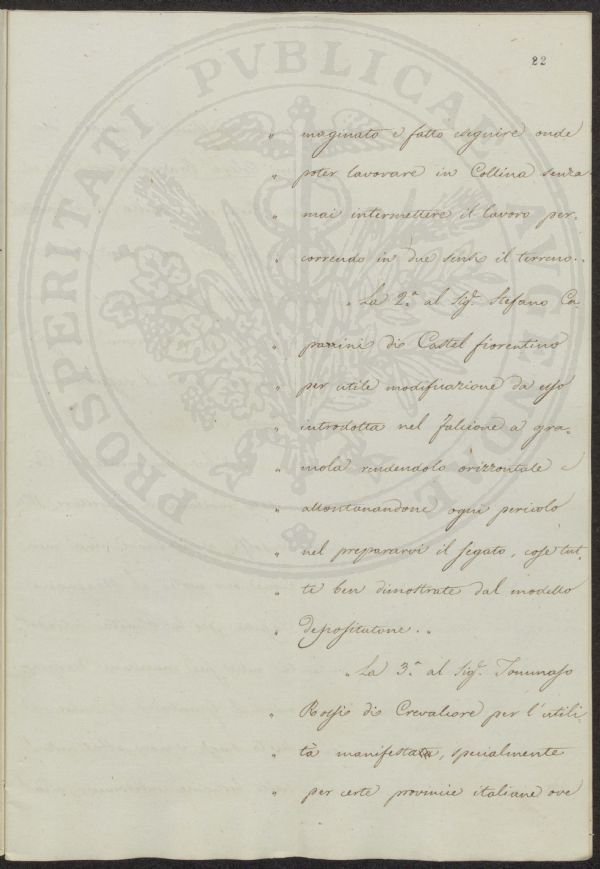 22
" maginato e fatto eseguire onde
" poter lavorare in Collina senza
" mai intermettere il lavoro per-
" correndo in due sensi il terreno. "
" La 2.ª al Sig.r Stefano Ca-
" parrini di Castel fiorentino
" per utile modificazione da esso
" introdotta nel falcione a gra-
" mola rendendolo orizzontale e
" allontanandone ogni pericolo
" nel prepararvi il segato, cose tut-
" te ben dimostrate dal modello
" depositatone. "
" La 3.ª al Sig.r Tommaso
" Rossi di Crevalcore per l'utili-
" tà manifestata, specialmente
" per certe provincie italiane ove
PROSPERITATI PVBLICAE AVGENDAE